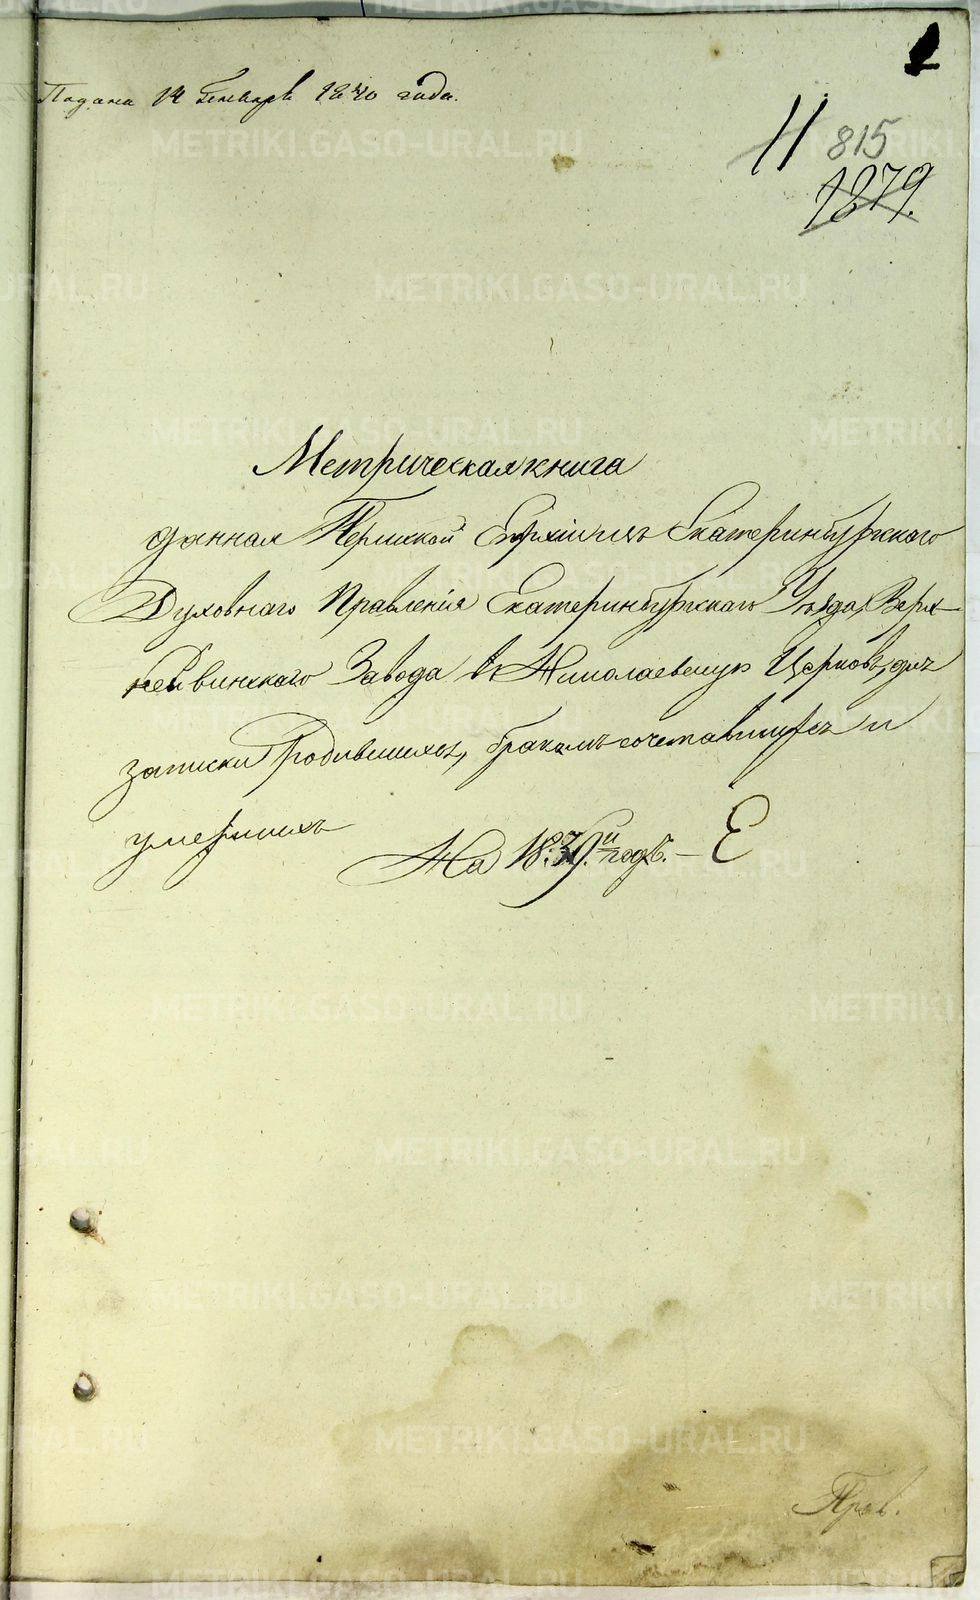 Подана 14 Генваря 1840 года.
11 815
1879.
Метрическая книга
данная Пермской Епархіи изъ Екатеринбургскаго
Духовнаго Правленія Екатеринбургскаго Уѣзда, Верх-
нейвинскаго Завода въ Николаевскую Церковь, для
записки Родившихся, бракомъ сочетавшихся и
умершихъ
На 1839й годъ. – Е
Прав.
METRIKI.GASO-URAL.RU